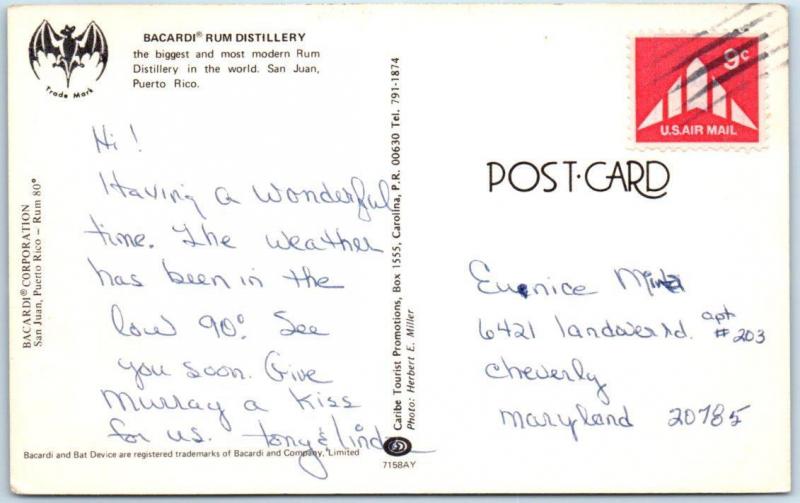 BACARDI® RUM DISTILLERY
the biggest and most modern Rum
Distillery in the world. San Juan,
Puerto Rico.
Trade Mark
BACARDI® CORPORATION
San Juan, Puerto Rico – Rum 80°
Hi!
Having a wonderful
time. The weather
has been in the
low 90°. See
you soon. Give
Murray a Kiss
for us. Tony & Linda
Bacardi and Bat Device are registered trademarks of Bacardi and Company, Limited
Caribe Tourist Promotions, Box 1555, Carolina, P.R. 00630 Tel. 791-1874
Photo: Herbert E. Miller
7158AY
9c
U.S. AIR MAIL
POST·CARD
Eunice
6421 landover rd. apt
#203
Cheverly
Maryland 20785